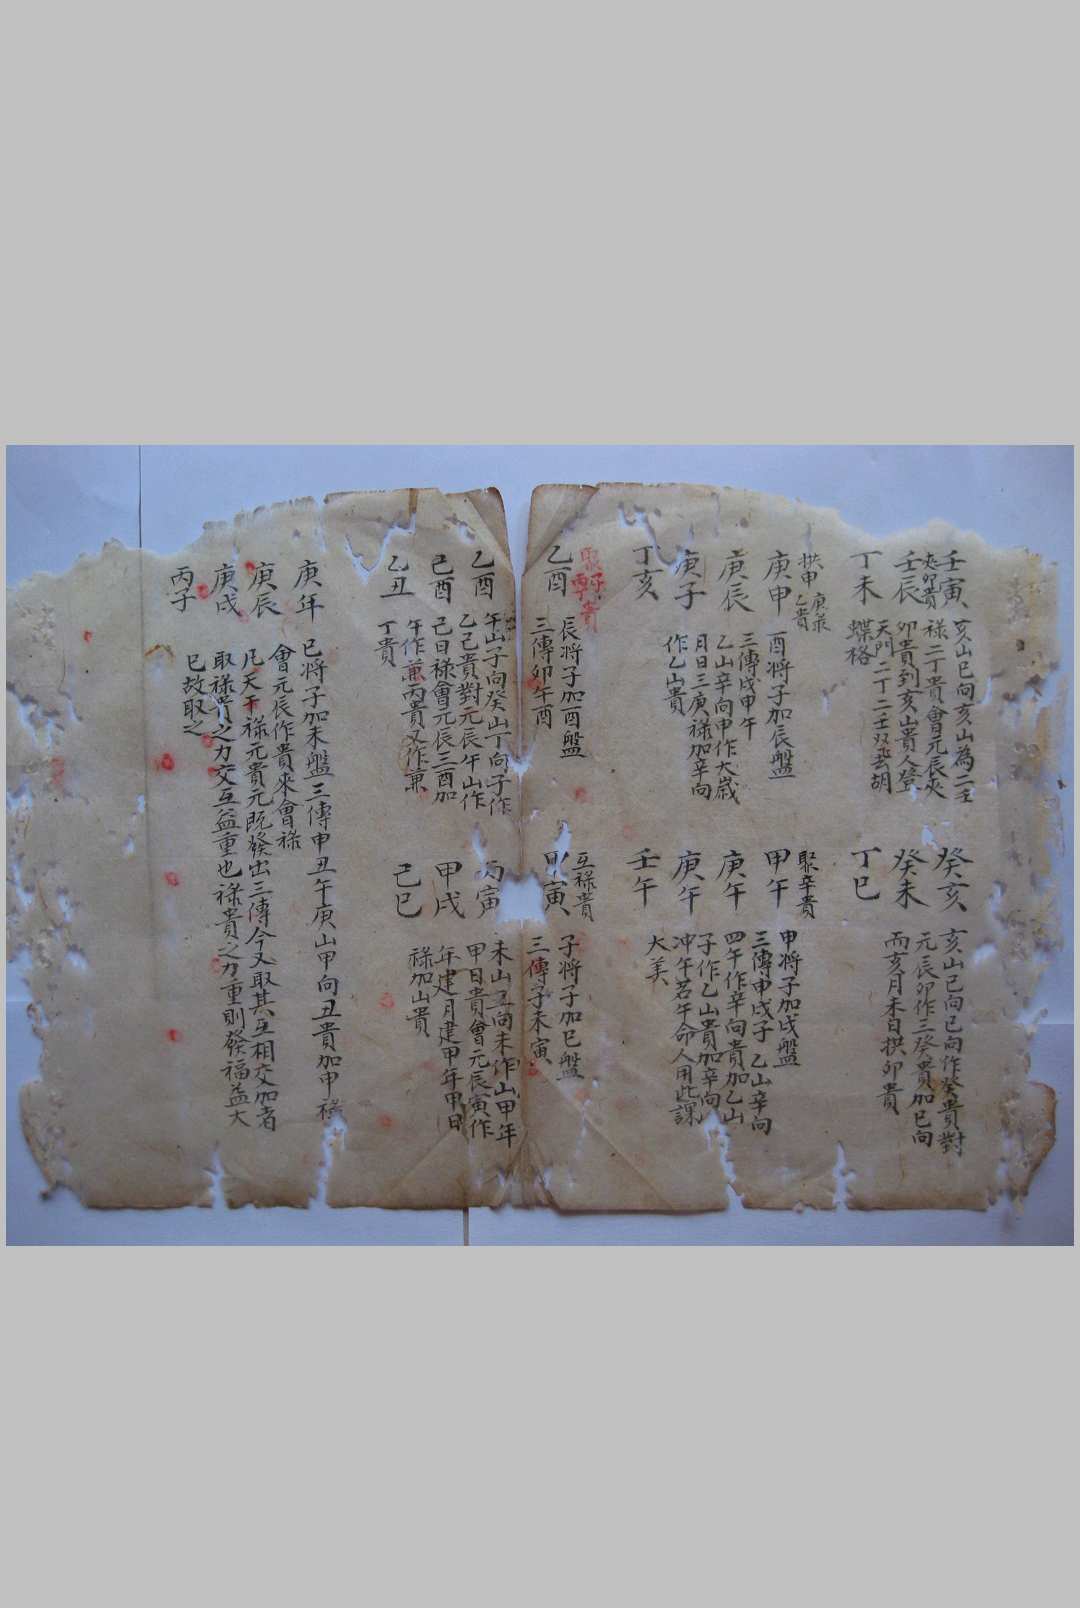 壬寅
夾卯貴
壬辰
丁未
亥山巳向亥山為二壬
祿二丁貴會元辰夾
卯貴到亥山貴人登
天門二丁二壬双飛胡
蝶格
癸亥
癸未
丁巳
亥山巳向巳向作癸貴對
元辰卯作三癸貴加巳向
而亥月未日拱卯貴
拱申 庚祿
乙貴
庚申
庚辰
庚子
丁亥
酉將子加辰盤
三傳戌申午
乙山辛向申作大歲
月日三庚祿加辛向
作乙山貴
聚辛貴
甲午
庚午
庚午
壬午
甲將子加戌盤
三傳申戌子 乙山辛向
四午作辛向貴加乙山
子作乙山貴加辛向
冲午若午命人用此課
大美
乙酉
辰將子加酉盤
三傳卯午酉
互祿貴
甲寅
子將子加巳盤
三傳子未寅
乙酉
己酉
乙丑
午山子向癸山丁向子作
乙己貴對元辰午山作
己日祿會元辰三酉加
午作兼丙貴又作兼
丁貴
丙寅
甲戌
己巳
未山丑向未作山甲年
甲日貴會元辰寅作
年建月建甲年甲日
祿加山貴
庚年
庚辰
庚戌
丙子
巳將子加未盤三傳申丑午庚山甲向丑貴加申祿
會元辰作貴來會祿
凡天干祿元貴元既發出三傳今又取其互相交加者
取祿貴之力交互益重也祿貴之力重則發福益大
巳故取之